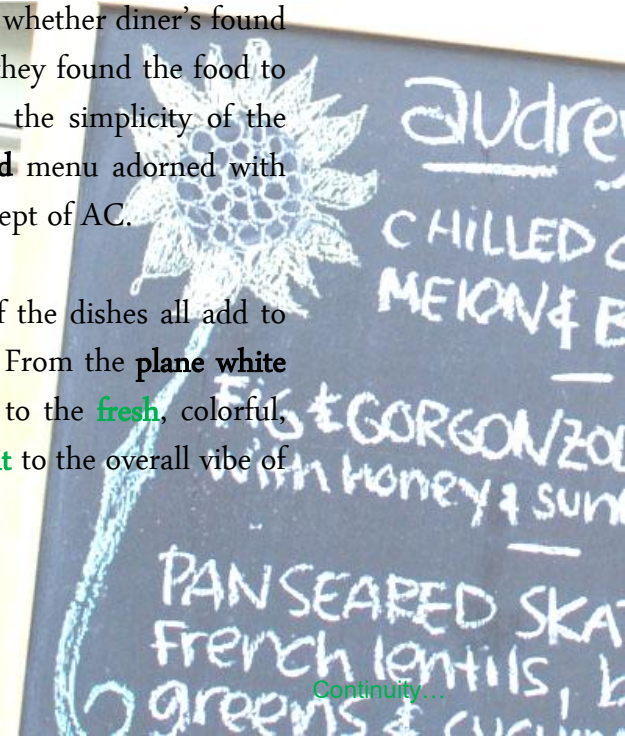 whether diner's found
they found the food to
the simplicity of the
menu adorned with
of AC.
the dishes all add to
From the plane white
to the fresh, colorful,
to the overall vibe of
CHILLED
MELON &
FIG & GORGONZOL
with honey & sun
PAN SEARED SKA
French lentils,
greens &
Continuity…